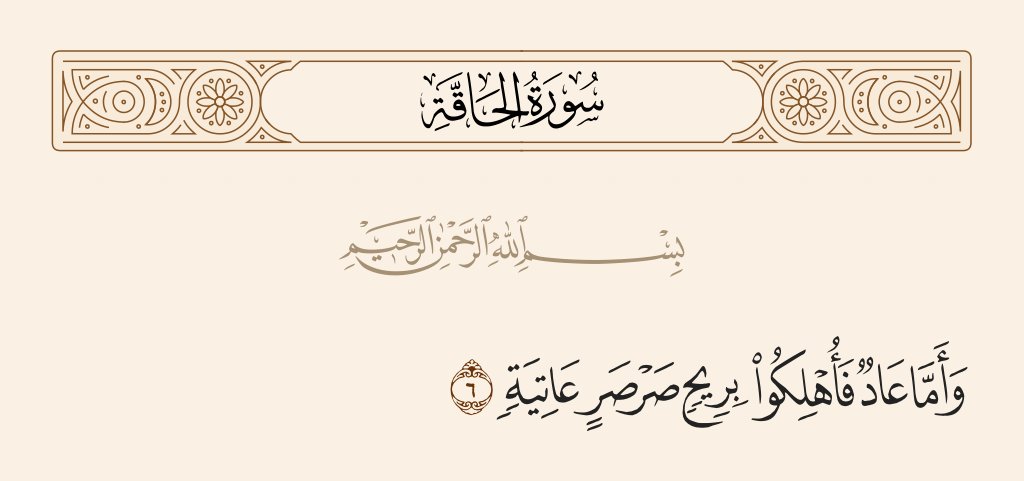 سُورَةُ الحَاقَّةِ
بِسْمِ ٱللَّهِ ٱلرَّحْمَٰنِ ٱلرَّحِيمِ
وَأَمَّا عَادٌ فَأُهْلِكُوا۟ بِرِيحٍ صَرْصَرٍ عَاتِيَةٍ ٦